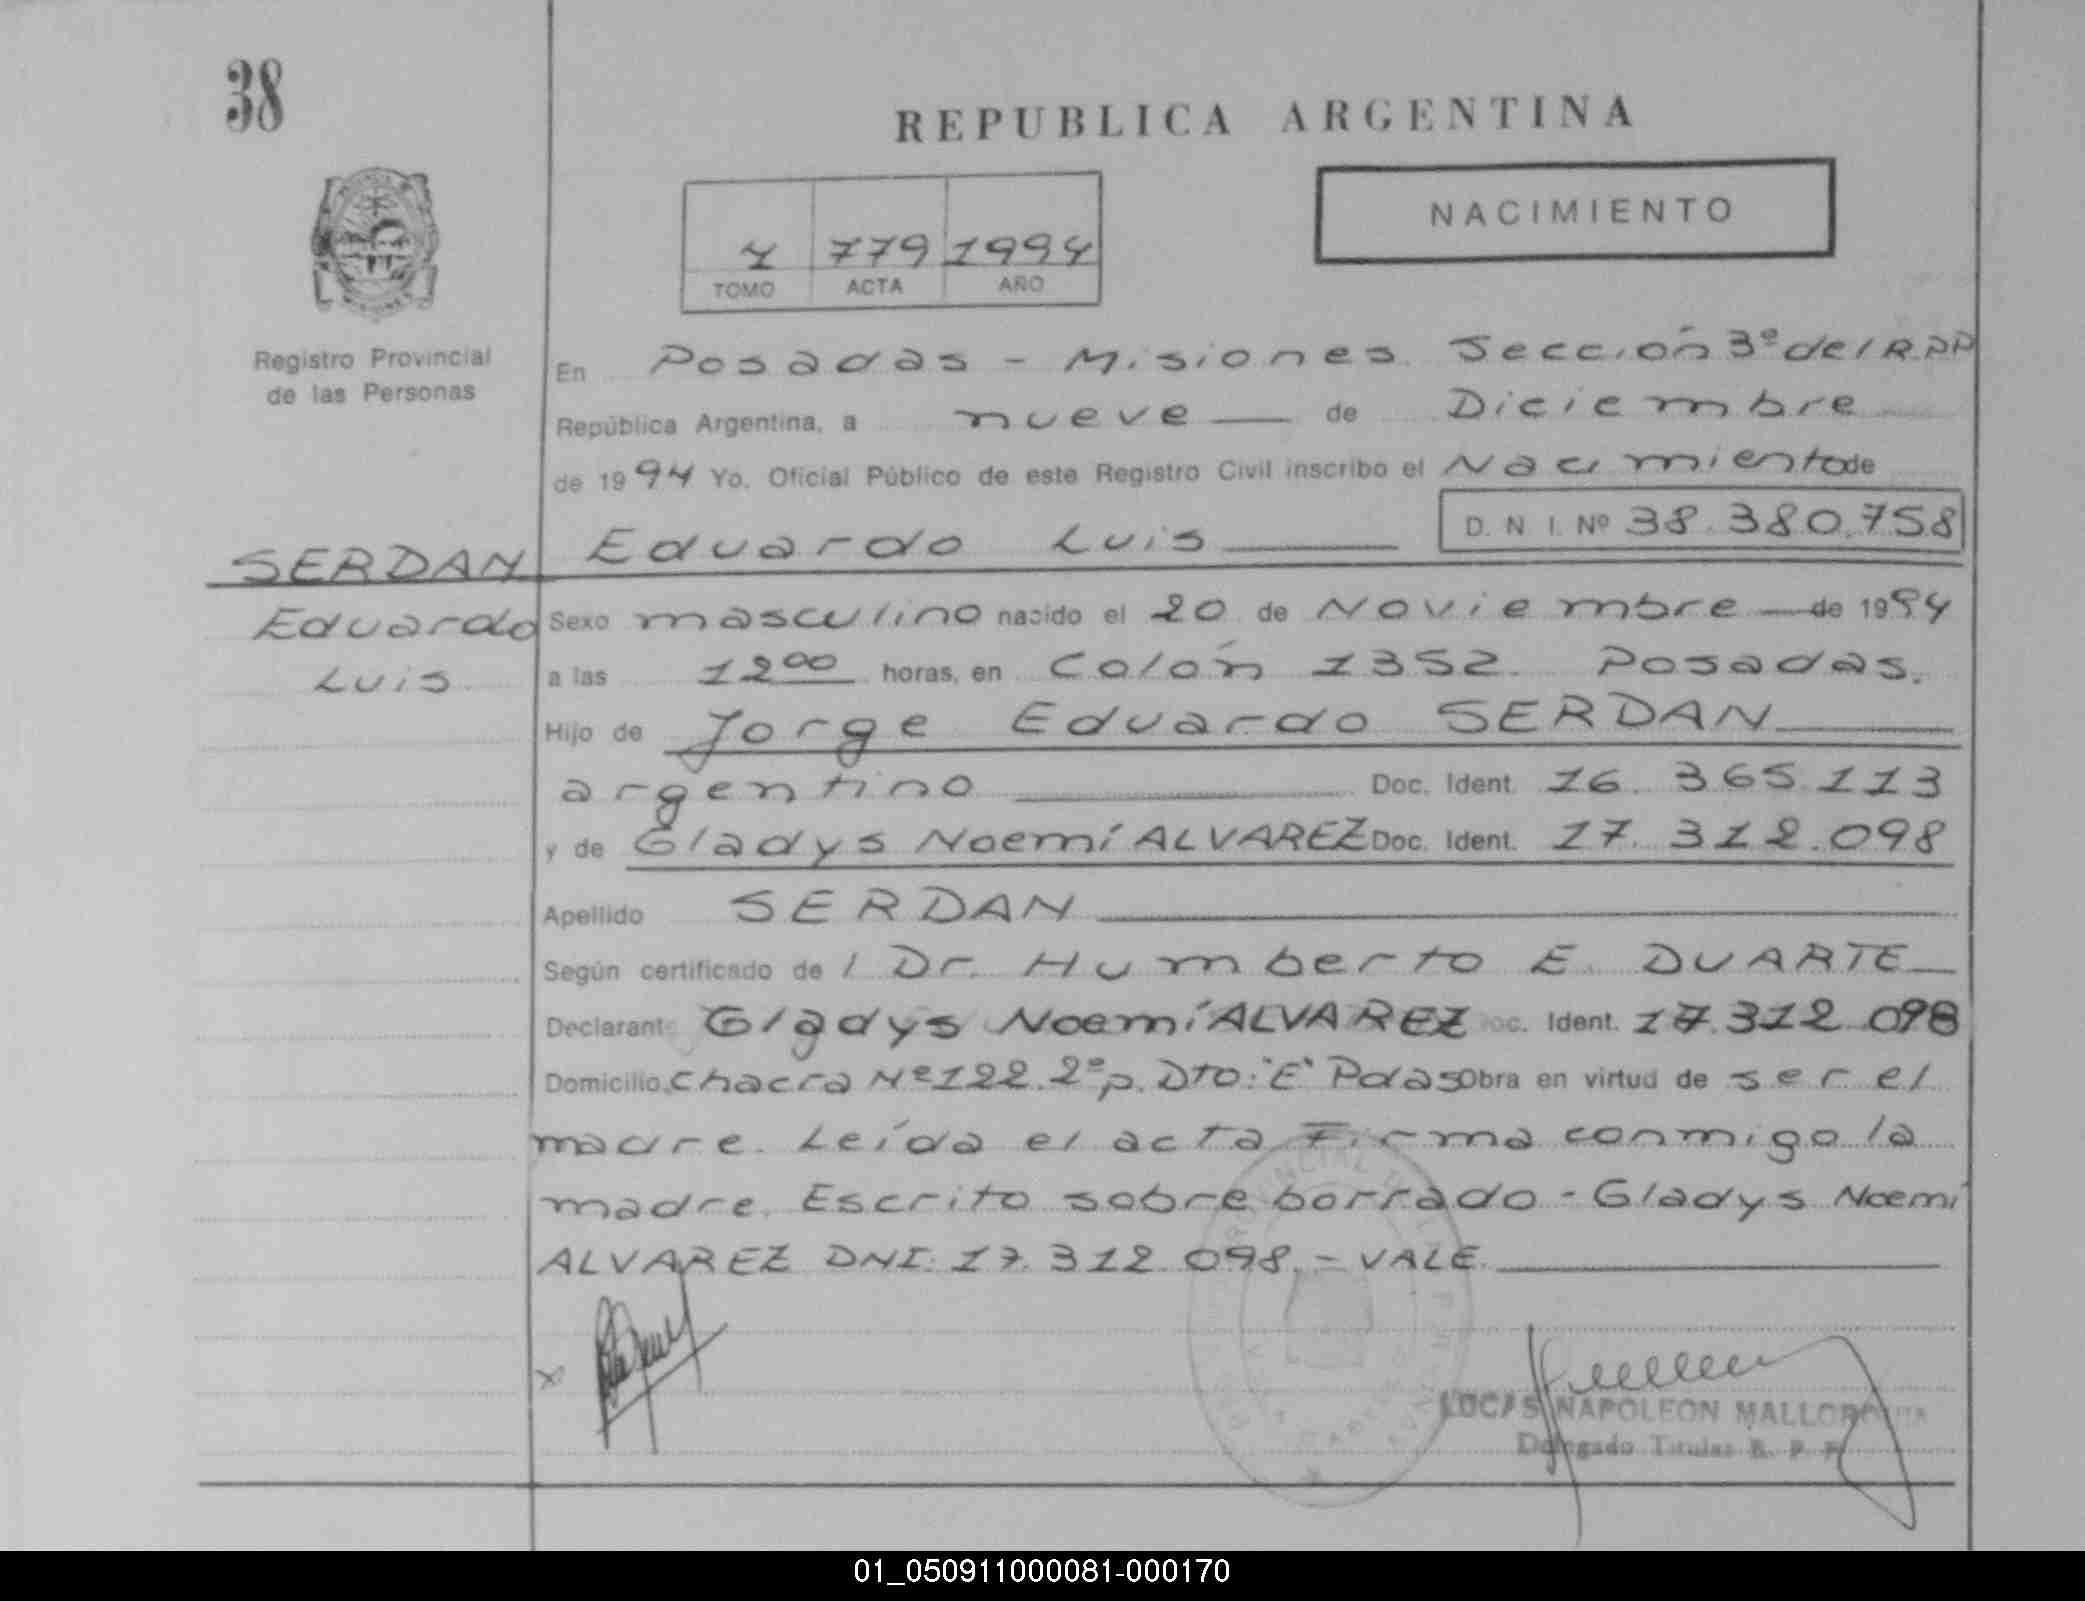 38
REPUBLICA ARGENTINA
NACIMIENTO
779 1994
TOMO ACTA AÑO
Registro Provincial
de las Personas
En Posadas - Misiones. Sección 3º del R.P.P
República Argentina, a nueve de Diciembre
de 1994 Yo, Oficial Público de este Registro Civil inscribo el Nacimiento de
Eduardo Luis D. N. I. Nº 38.380.758
SERDAN
Eduardo
Luis
Sexo masculino nacido el 20 de Noviembre de 1994
a las 12 00 horas, en Colón 1352. Posadas.
Hijo de Jorge Eduardo SERDAN
argentino Doc. Ident. 16.365.113
y de Gladys Noemí ALVAREZ Doc. Ident. 17.312.098
Apellido SERDAN
Según certificado de / Dr. Humberto E. DUARTE
Declarante Gladys Noemí ALVAREZ Doc. Ident. 17.312.098
Domicilio Chacra Nº 122. 2º p. Dto: "E" Pdas Obra en virtud de ser el
madre. Leída el acta Firma conmigo la
madre. Escrito sobre borrado - Gladys Noemí
ALVAREZ DNI. 17.312.098. - VALE.
LUCAS NAPOLEON
Delegado Titular R. P. P.
01_050911000081-000170